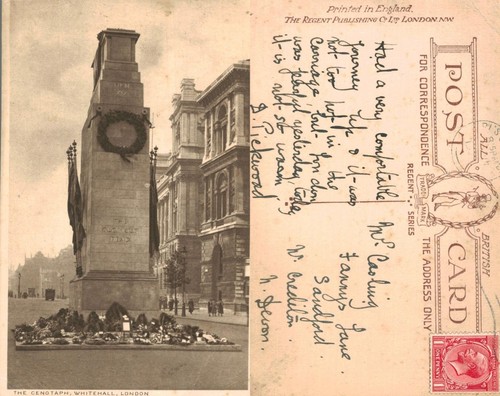 THE CENOTAPH, WHITEHALL, LONDON
Printed in England.
THE REGENT PUBLISHING Co Ltd LONDON. NW
POST CARD
FOR CORRESPONDENCE
THE ADDRESS ONLY
REGENT SERIES
TRADE MARK
BRITISH
Had a very comfortable
journey up & it was
not too hot in the
carriage but London
was
yesterday, today
it is not so warm
D. Pickwoad
Mr Casling
Fannys Lane.
Sandford.
Nr Crediton.
N. Devon.